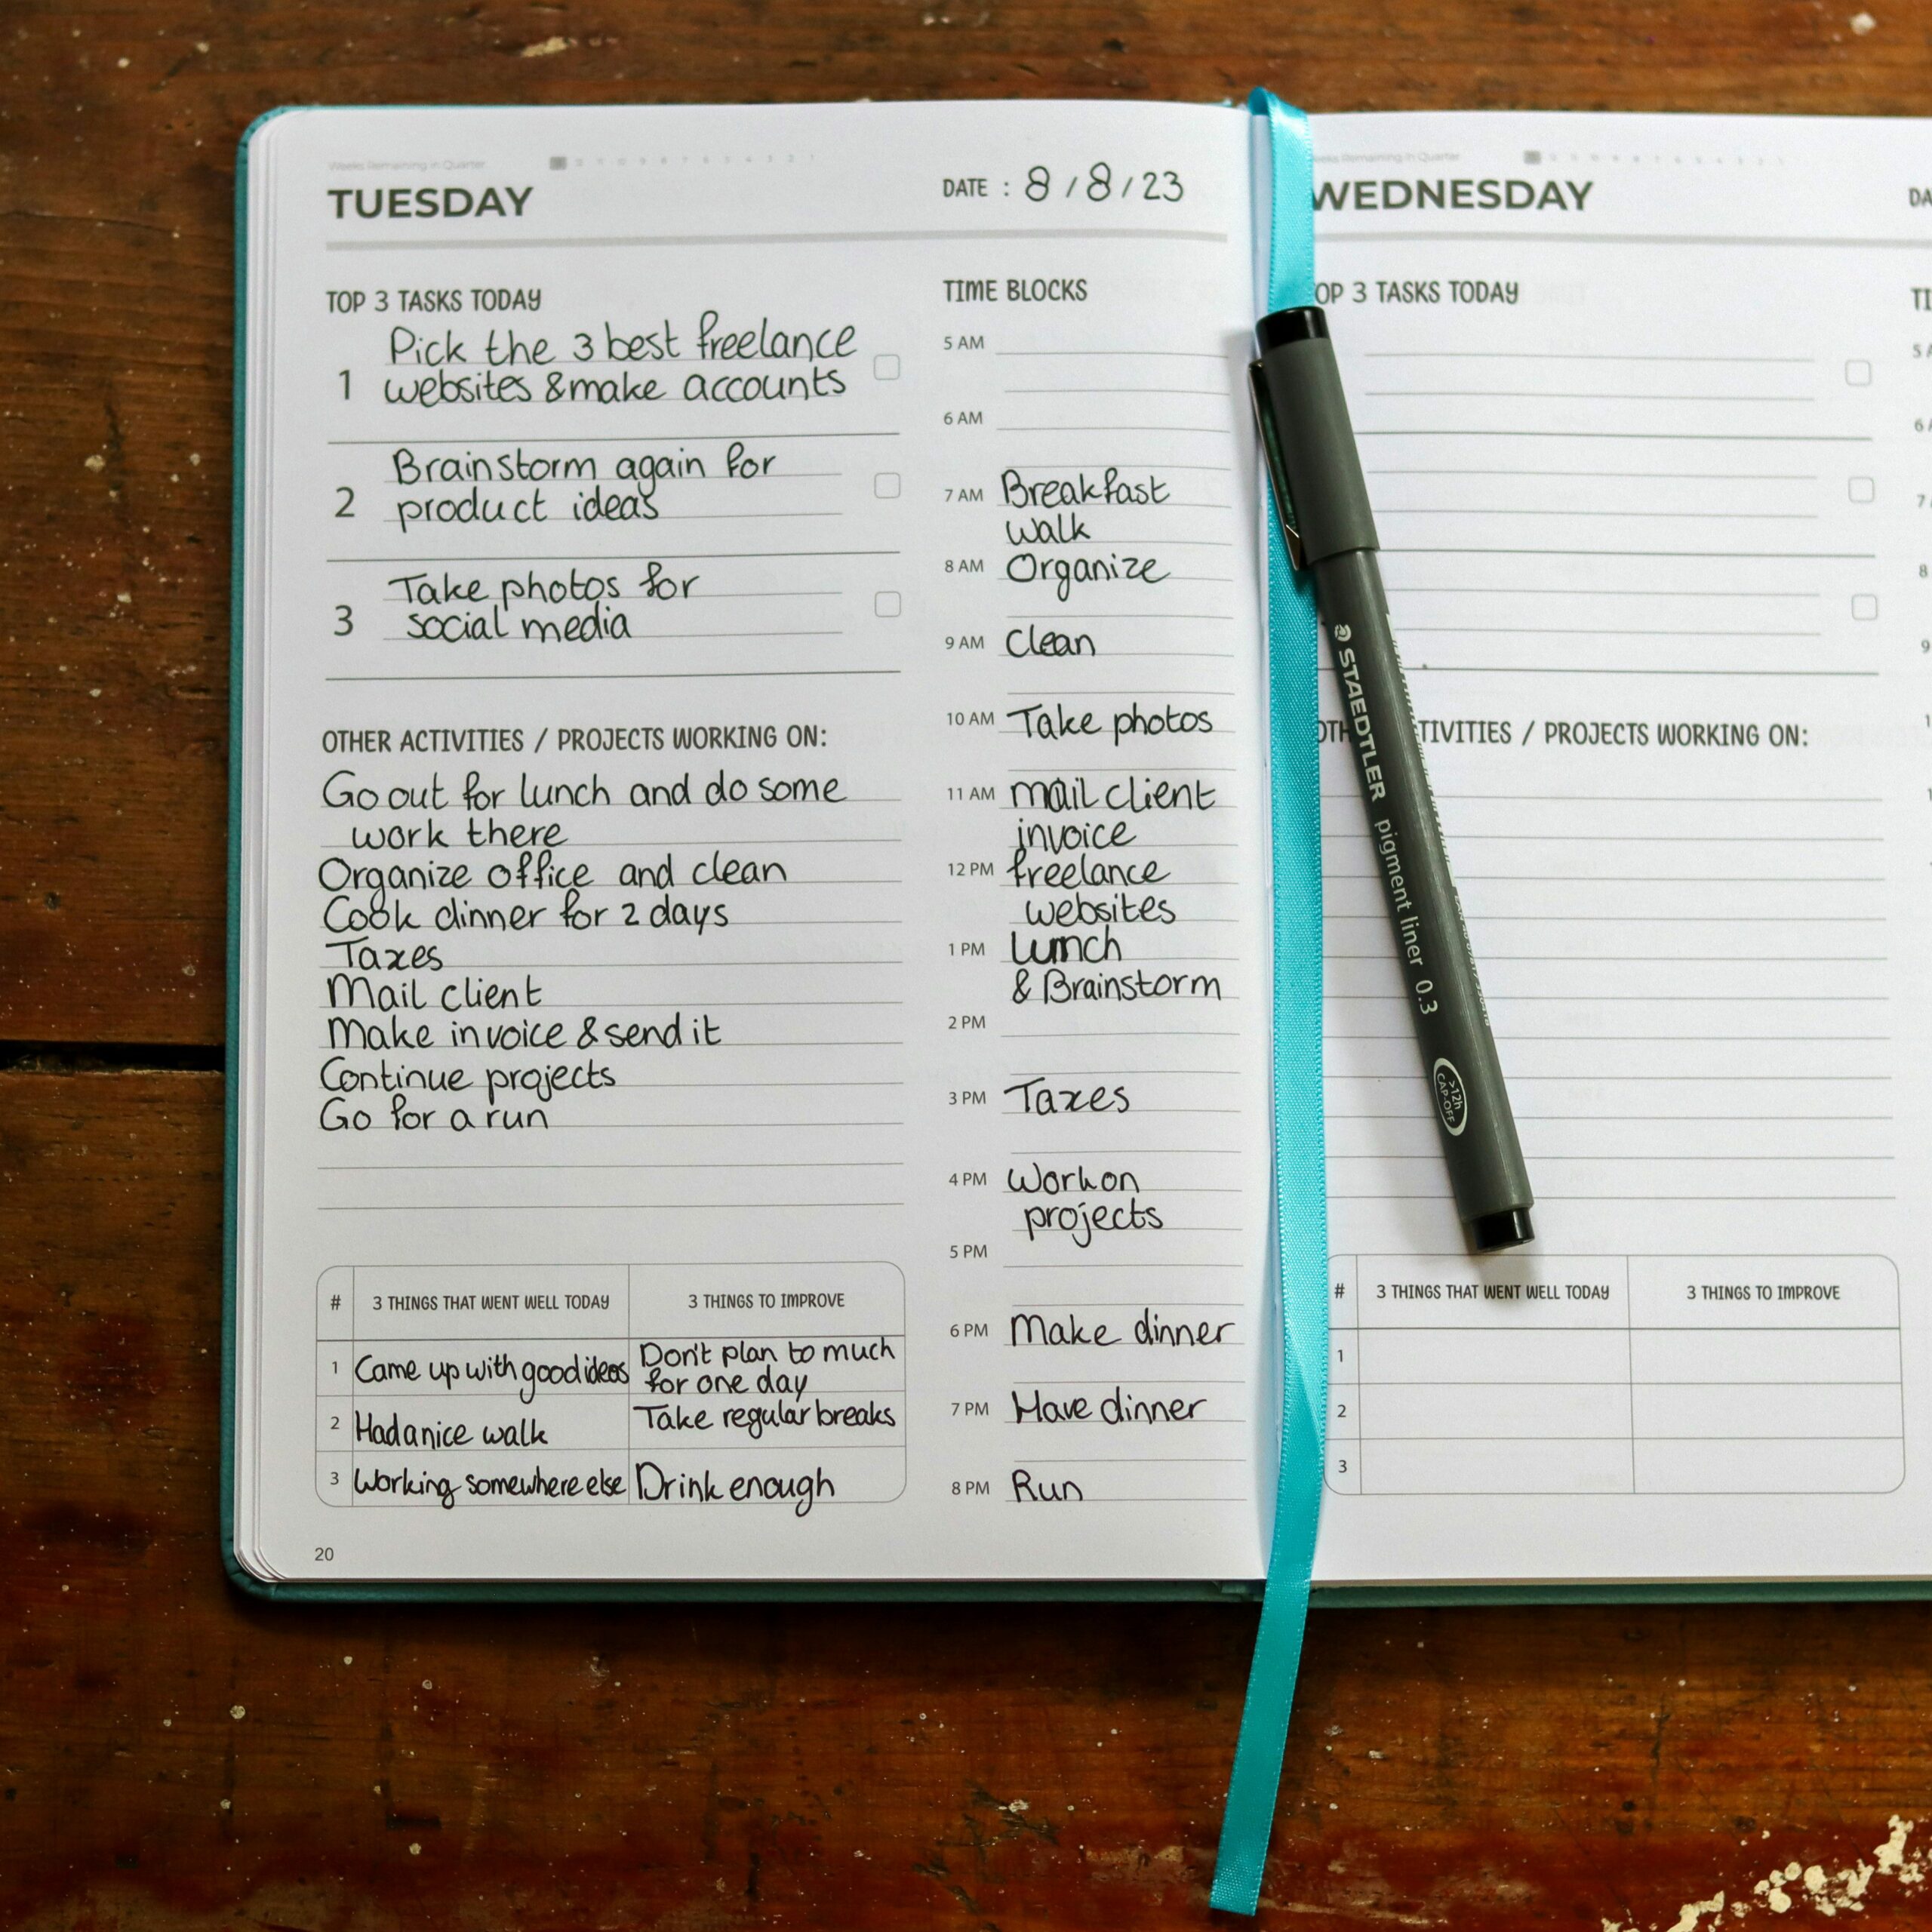 Weeks Remaining in Quarter
TUESDAY
DATE : 8/8/23
TOP 3 TASKS TODAY
1 Pick the 3 best freelance
websites & make accounts
2 Brainstorm again for
product ideas
3 Take photos for
social media
OTHER ACTIVITIES / PROJECTS WORKING ON:
Go out for lunch and do some
work there
Organize office and clean
Cook dinner for 2 days
Taxes
Mail client
Make invoice & send it
Continue projects
Go for a run
# 3 THINGS THAT WENT WELL TODAY 3 THINGS TO IMPROVE
1 Came up with good ideas Don't plan to much
for one day
2 Had a nice walk Take regular breaks
3 Working somewhere else Drink enough
20
TIME BLOCKS
5 AM
6 AM
7 AM Breakfast
walk
8 AM Organize
9 AM Clean
10 AM Take photos
11 AM mail client
invoice
12 PM freelance
websites
1 PM Lunch
& Brainstorm
2 PM
3 PM Taxes
4 PM Work on
projects
5 PM
6 PM Make dinner
7 PM Have dinner
8 PM Run
STAEDTLER pigment liner 0.3
>12h
CAP-OFF
Remaining in Quarter
WEDNESDAY
DA
OP 3 TASKS TODAY
TI
5 A
6 A
7
8
9
1
OTH TIVITIES / PROJECTS WORKING ON:
# 3 THINGS THAT WENT WELL TODAY 3 THINGS TO IMPROVE
1
2
3